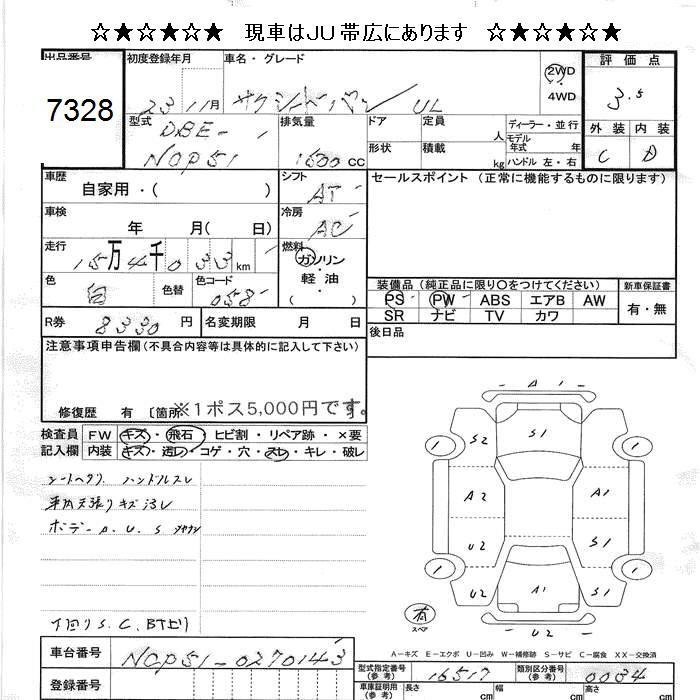 ☆★☆★☆★ 現車はJU帯広にあります ☆★☆★☆★
出品番号 初度登録年月 車名・グレード 評価点
7328 23 11月 サクシードバン UL 2WD 4WD 3.5
型式 排気量 ドア 定員 人 ディーラー・並行 外装 内装
DBE- モデル年式 年 C D
NCP51 1500cc 形状 積載 kg ハンドル 左・右
車歴 シフト セールスポイント (正常に機能するものに限ります)
自家用・( ) AT
車検 冷房
年 月( 日) AC
走行 燃料
15万4千033km ガソリン・軽油・( )
色 色替 色コード 装備品(純正品に限り○をつけてください) 新車保証書
白 058 PS PW ABS エアB AW 有・無
SR ナビ TV カワ
R券 8330円 名変期限 月 日 後日品
注意事項申告欄(不具合内容等は具体的に記入して下さい)
修復歴 有 〔箇所 ※1ポス5,000円です。
検査員 FW キズ・飛石・ヒビ割・リペア跡・×要
記入欄 内装 キズ・汚レ・コゲ・穴・スレ・キレ・破レ
シートヘタリ ハンドルスレ
車内天張りキズ汚レ
ボデー A.U.S
下回りS.C.
A1
S2 S1
1 1
A2 A1
U2 S1
1 1
U2 A1 S1
有 スペア U2
A-キズ E-エクボ U-凹み W-補修跡 S-サビ C-腐食 XX-交換済
車台番号 NCP51-0270143
型式指定番号(参考) 16517 類別区分番号(参考) 0034
登録番号
車庫証明用(参考) 長さ cm 幅 cm 高さ cm